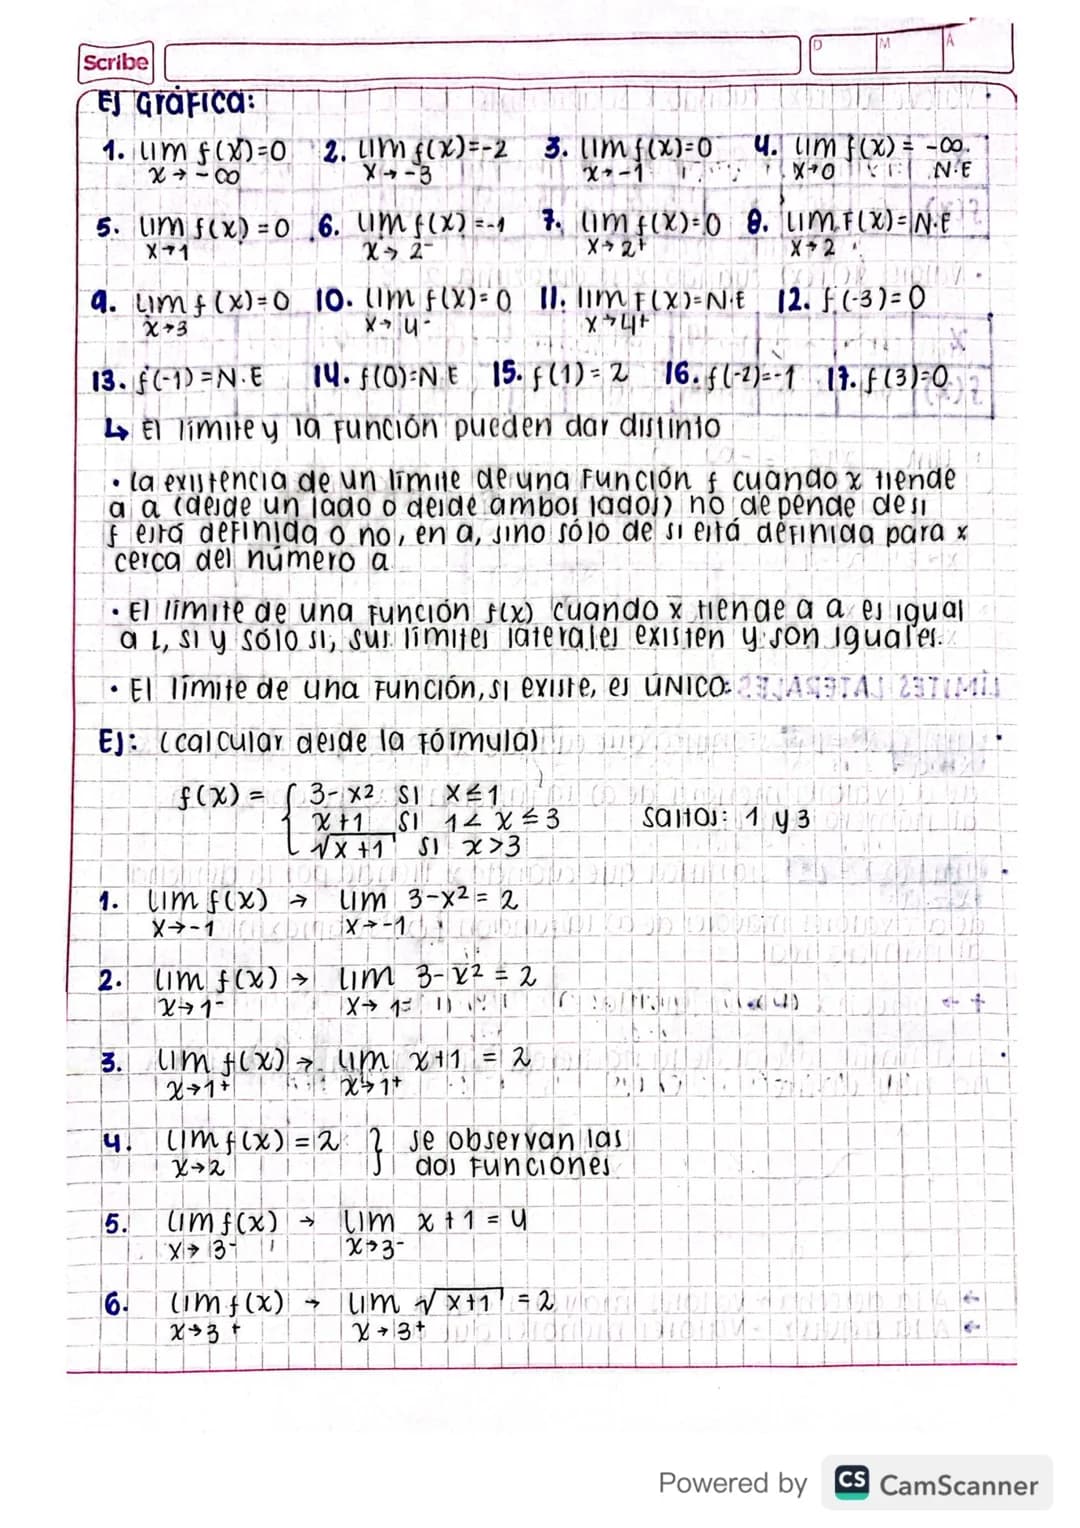 Scribe
D M A
Ej Gráfica:
1. lim f(x)=0 2. lim f(x)=-2 3. lim f(x)=0 4. lim f(x) = -∞.
x→-∞ x→-3 x→-1 x→0 N.E
5. lim f(x)=0 6. lim f(x)=-1 7. lim f(x)=0 8. lim F(x)=N.E
x→1 x→2- x→2+ x→2
9. lim f(x)=0 10. lim f(x)=0 11. lim F(x)=N.E 12. f(-3)=0
x→3 x→4- x→4+
13. f(-1)=N.E 14. f(0)=N.E 15. f(1)=2 16. f(-2)=-1 17. f(3)=0
↳ El límite y la función pueden dar distinto
• La existencia de un límite de una función f cuando x tiende
a a (desde un lado o desde ambos lados) no depende de si
f está definida o no, en a, sino sólo de si está definida para x
cerca del número a
• El límite de una función f(x) cuando x tiende a a es igual
a L, si y sólo si, sus límites laterales existen y son iguales.
• El límite de una función, si existe, es ÚNICO.
Ej: (calcular desde la fórmula)
f(x) = { 3-x² si x≤1
x+1 si 1< x ≤ 3 saltos: 1 y 3
√x+1 si x>3
1. lim f(x) → lim 3-x² = 2
x→-1 x→-1
2. lim f(x) → lim 3-x² = 2
x→1- x→1-
3. lim f(x) → lim x+1 = 2
x→1+ x→1+
4. lim f(x) = 2 } se observan las
x→2 dos funciones
5. lim f(x) → lim x+1 = 4
x→3- x→3-
6. lim f(x) → lim √x+1 = 2
x→3+ x→3+
Powered by CS CamScanner